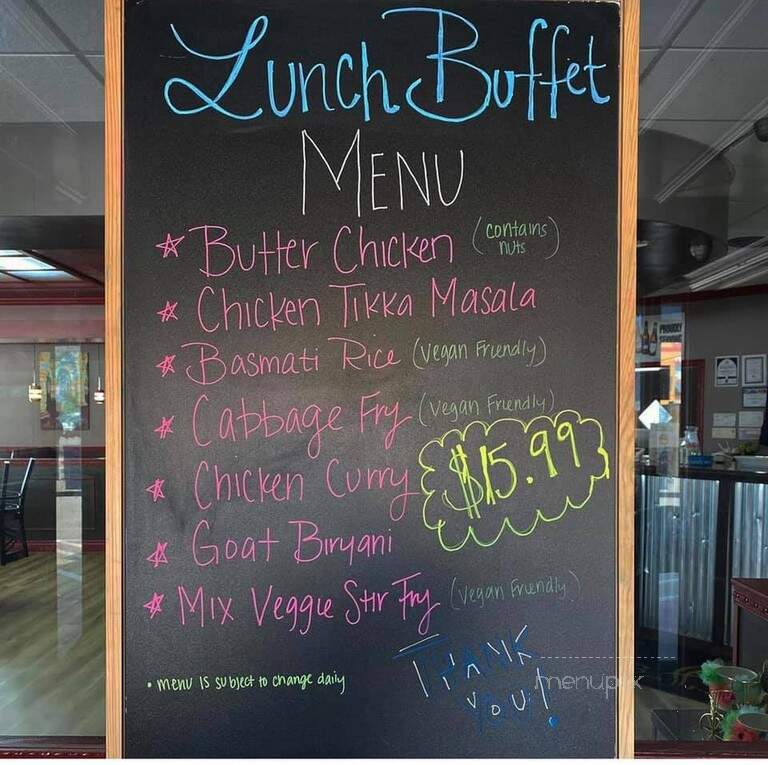 Lunch Buffet
MENU
Butter Chicken (contains nuts)
Chicken Tikka Masala
Basmati Rice (Vegan Friendly)
Cabbage Fry (Vegan Friendly)
Chicken Curry
$15.99
Goat Biryani
Mix Veggie Stir Fry (Vegan Friendly)
• menu is subject to change daily
THANK
YOU!
menupix
PROUDLY